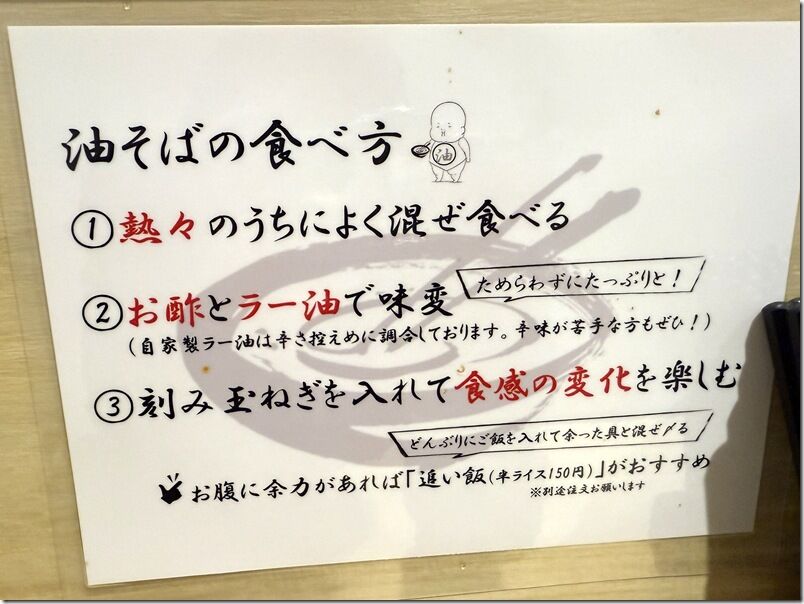 油そばの食べ方
油
①熱々のうちによく混ぜ食べる
ためらわずにたっぷりと！
②お酢とラー油で味変
(自家製ラー油は辛さ控えめに調合しております。辛味が苦手な方もぜひ！)
③刻み玉ねぎを入れて食感の変化を楽しむ
どんぶりにご飯を入れて余った具と混ぜ〆る
お腹に余力があれば「追い飯(半ライス150円)」がおすすめ
※別途注文お願いします